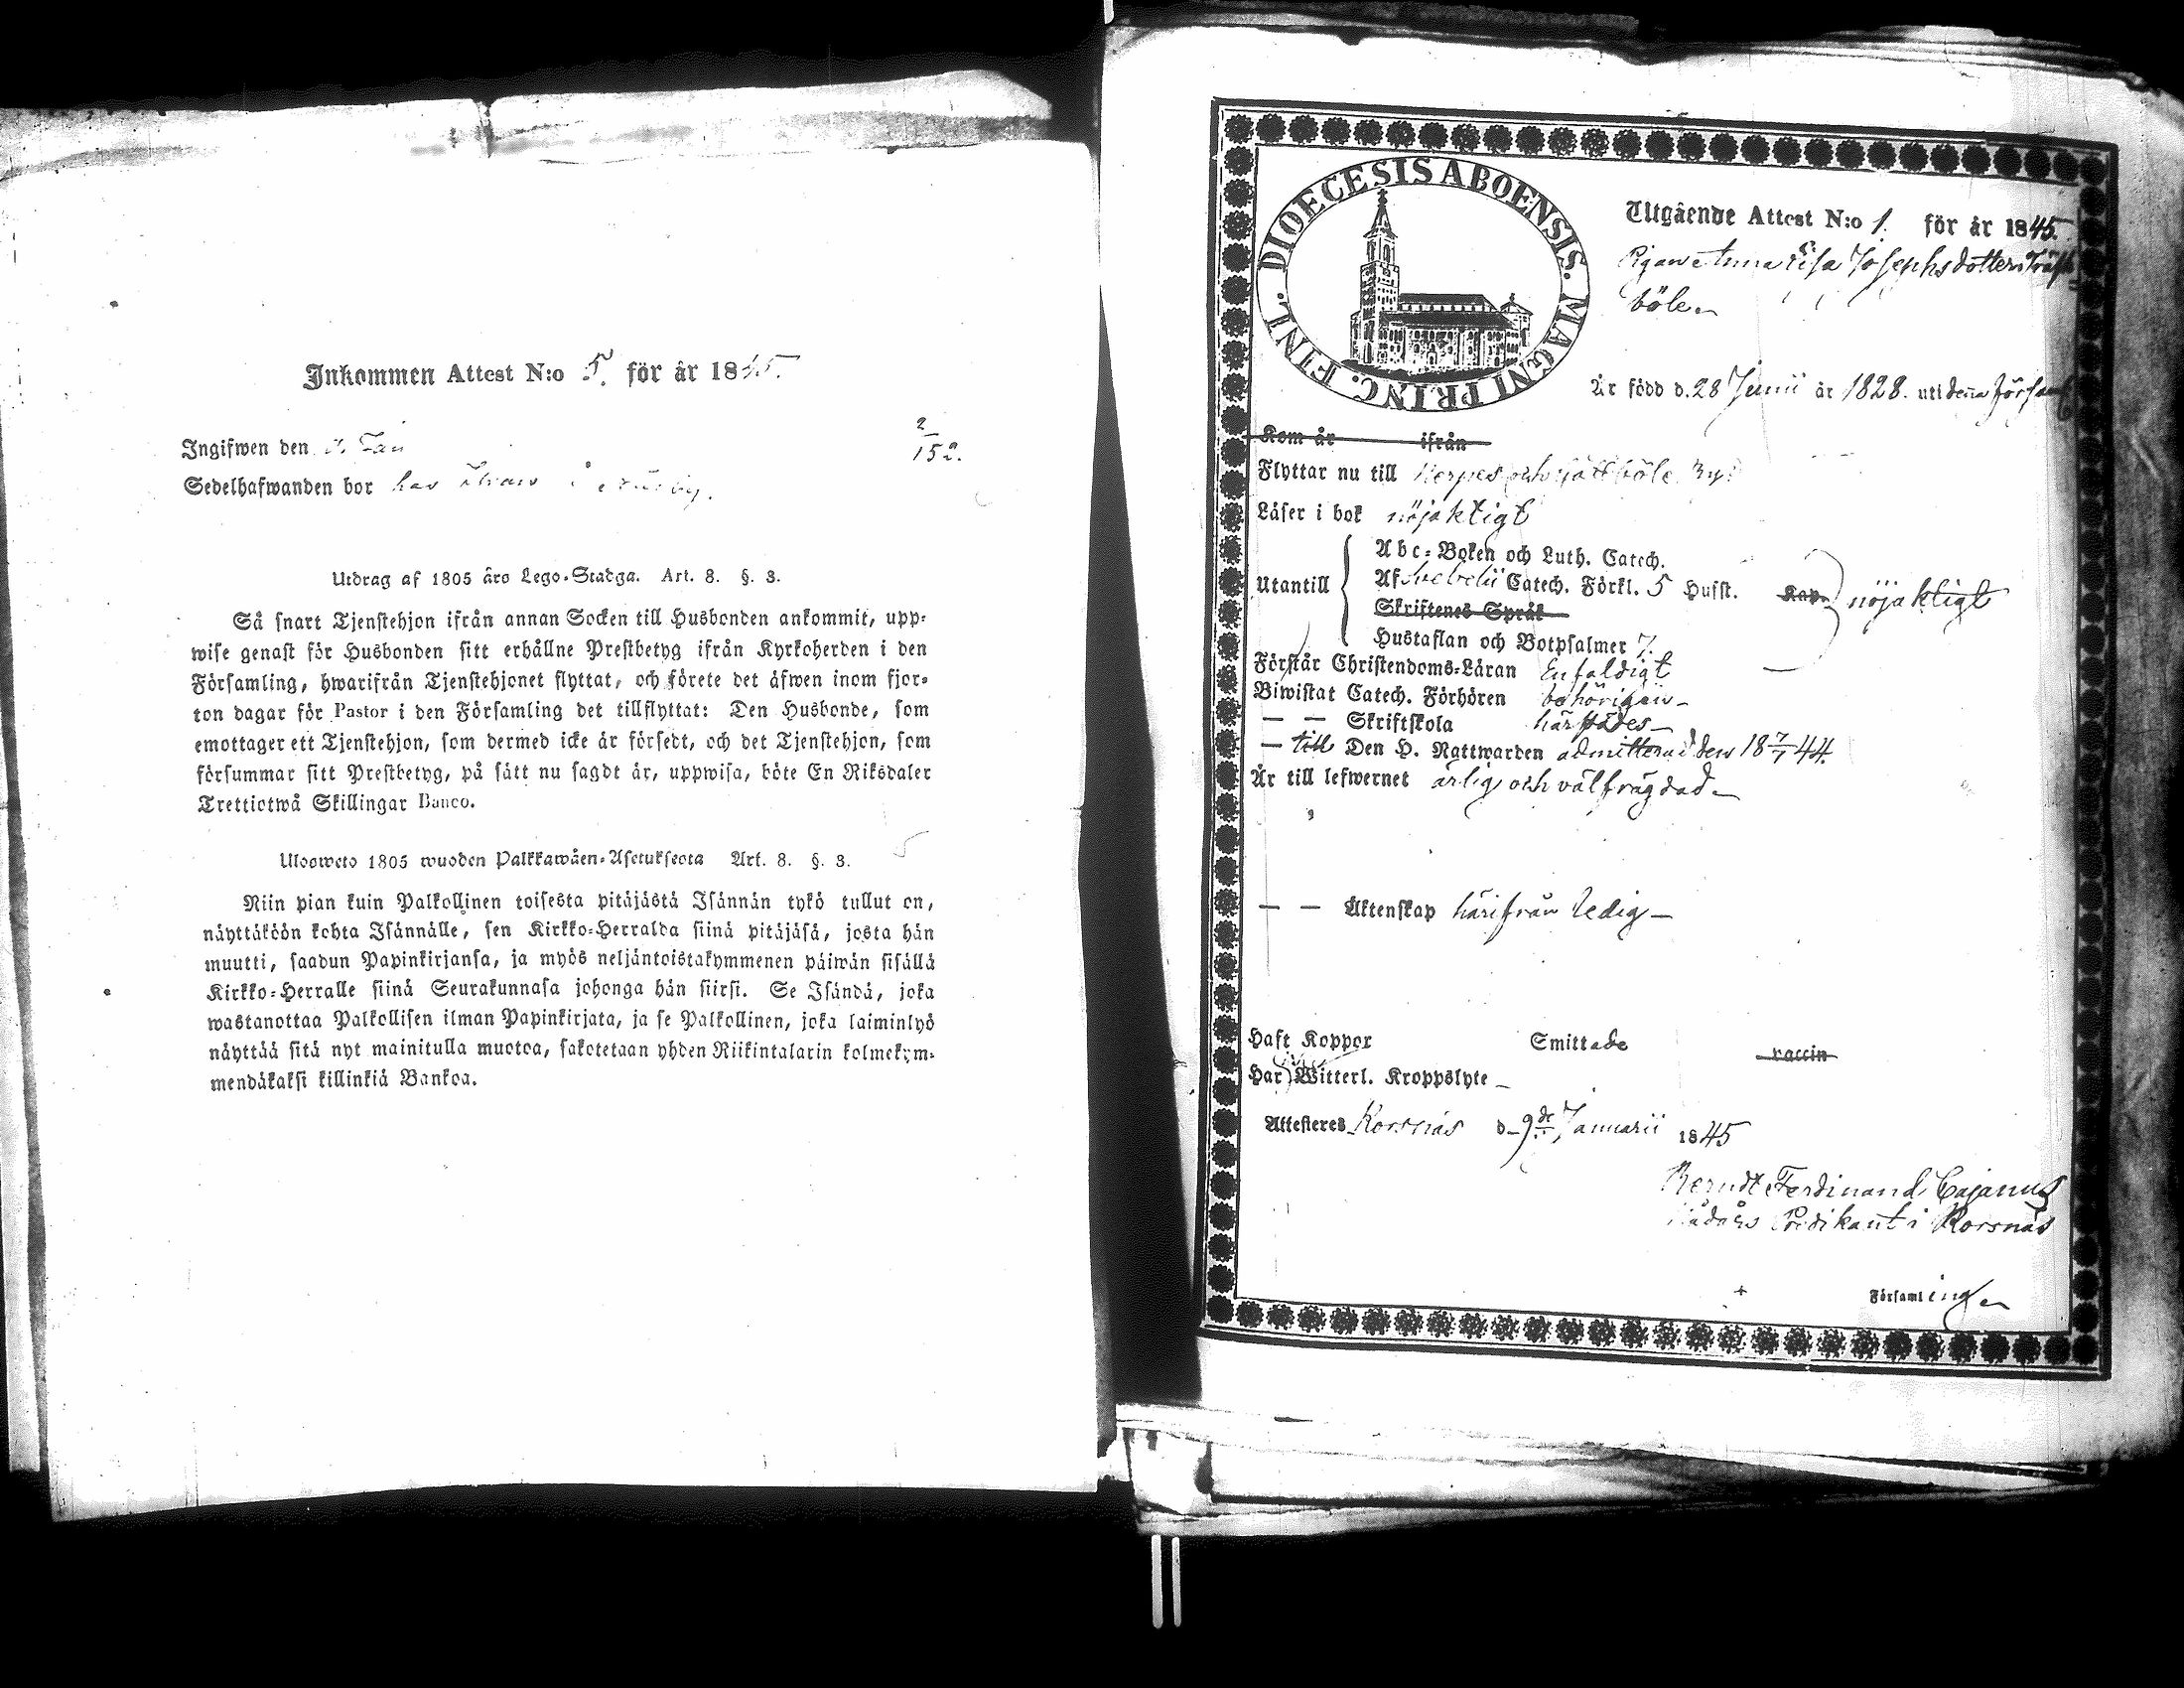 Inkommen Attest N:o 5. för år 1845.
2
152.
Ingifwen den
Sedelhafwanden bor hos
Utdrag af 1805 års Lego-Stadga. Art. 8. §. 3.
Så snart Tjenstehjon ifrån annan Socken till Husbonden ankommit, upp-
wise genast för Husbonden sitt erhållne Prestbetyg ifrån Kyrkoherden i den
Församling, hwarifrån Tjenstehjonet flyttat, och förete det äfwen inom fjor-
ton dagar för Pastor i den Församling det tillflyttat: Den Husbonde, som
emottager ett Tjenstehjon, som dermed icke är försedt, och det Tjenstehjon, som
försummar sitt Prestbetyg, på sätt nu sagdt är, uppwisa, böte En Riksdaler
Trettiotwå Skillingar Banco.
Ulosweto 1805 wuoden Palkkawäen-Asetuksesta Art. 8. §. 3.
Niin pian kuin Palkollinen toisesta pitäjästä Isännän tykö tullut on,
näyttäköön kohta Isännälle, sen Kirkko-Herralda siinä pitäjäsä, josta hän
muutti, saadun Papinkirjansa, ja myös neljäntoistakymmenen päiwän sisällä
Kirkko-Herralle siinä Seurakunnasa johonga hän siirsi. Se Isändä, joka
wastanottaa Palkollisen ilman Papinkirjata, ja se Palkollinen, joka laiminlyö
näyttää sitä nyt mainitulla muotoa, sakotetaan yhden Riikintalarin kolmekym-
mendäkaksi killinkiä Bankoa.
DIOECESIS ABOENSIS. MAGNI PRINC. FINL.
Utgående Attest N:o 1. för år 1845.
Pigan Anna Lisa Josephsdotter Träsk
böle
Är född d. 28 Junii år 1828. uti denna Församl
Kom år ifrån
Flyttar nu till Nerpes och böle By
Läser i bok nöjaktigt
Abc-Boken och Luth. Catech.
Utantill Af Svebelii Catech. Förkl. 5 Husst. Kap. nöjaktigt
Skriftenes Språk
Hustaflan och Botpsalmer 7.
Förstår Christendoms-Läran Enfaldigt
Biwistat Catech. Förhören behörigen
— — Skriftskola härstädes
— till Den H. Nattwarden admitterad den 18 7/7 44.
Är till lefwernet ärlig och välfrägdad
— — Äktenskap härifrån ledig
Haft Koppor Smittade vaccin
Har Witterl. Kroppslyte
Attesteres Korsnäs d. 9de Januarii 1845
Berndt Ferdinand Cajanus
Predikant i Korsnäs
Församlingen